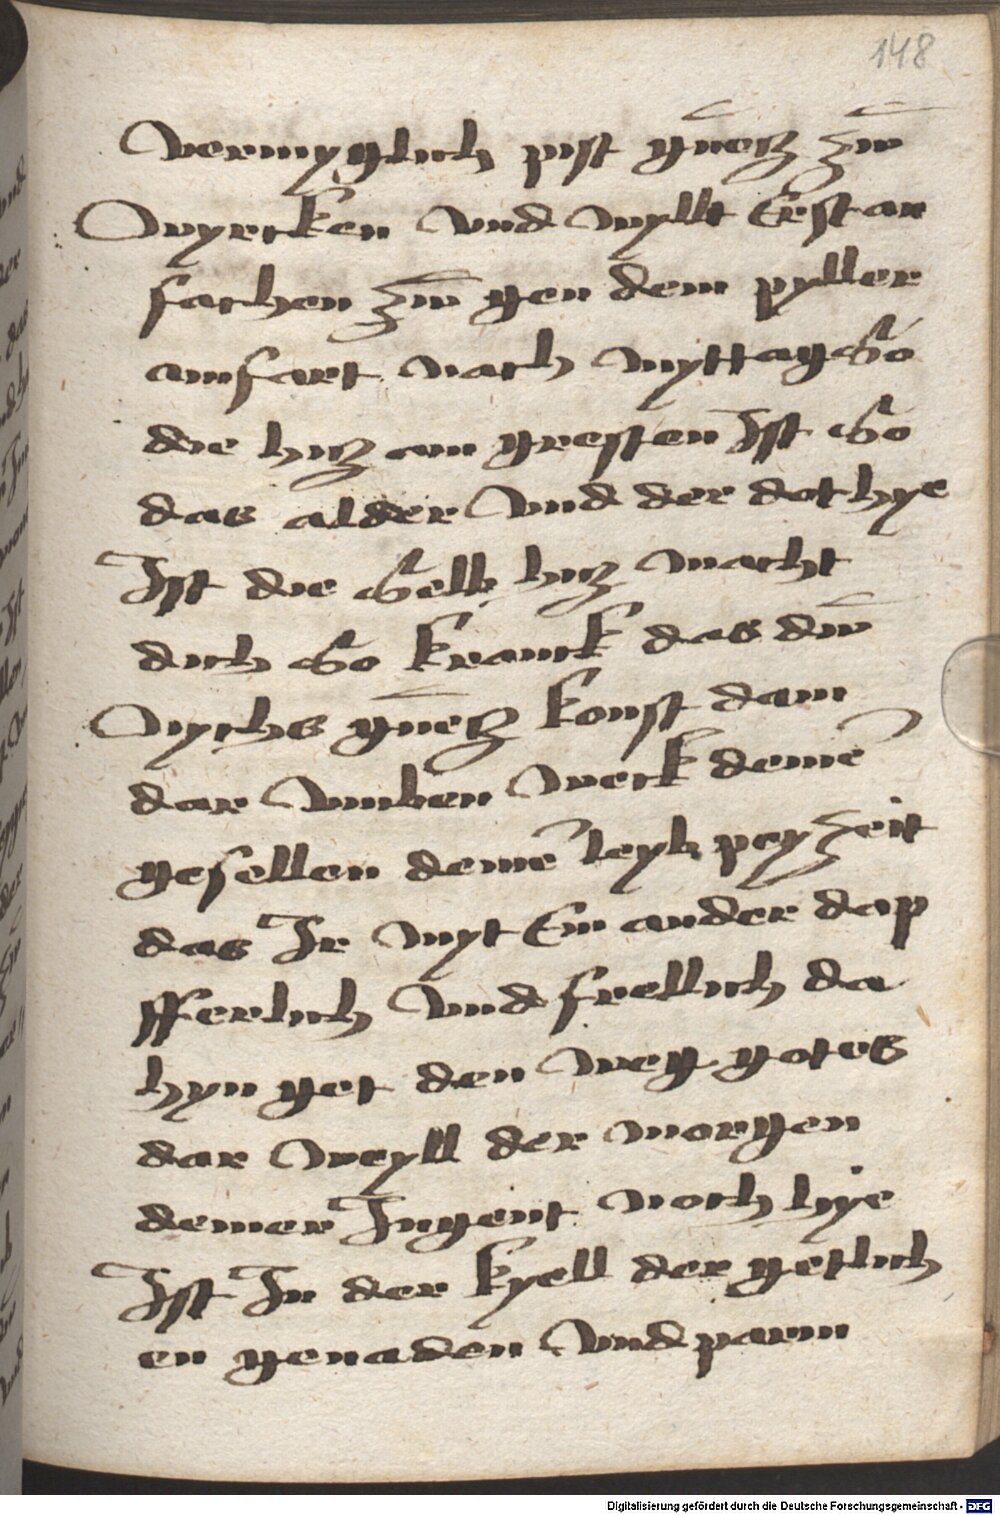 148
vermyglich pist gūetz zw̄
wyrcken vnd wyllt Erst an
fachen zw̄ gen dem pyller
amfart nach myttag So
die hitz am gresten Ist So
das alder vnd der dot hye
Ist die Selb hitz macht
dich So kranck das dw̄
nychs gūetz konst dam
dar vmben weck deinē
gesellen deinē leyb pey zeit
das Ir myt Ein ander dap
fferlich vnd frellich da
hyn get den weg gotes
dar weyll der morgen
deiner Ingent noch hye
Ist In der kyell der getlich
en genaden vnd parm
Digitalisierung gefördert durch die Deutsche Forschungsgemeinschaft - DFG